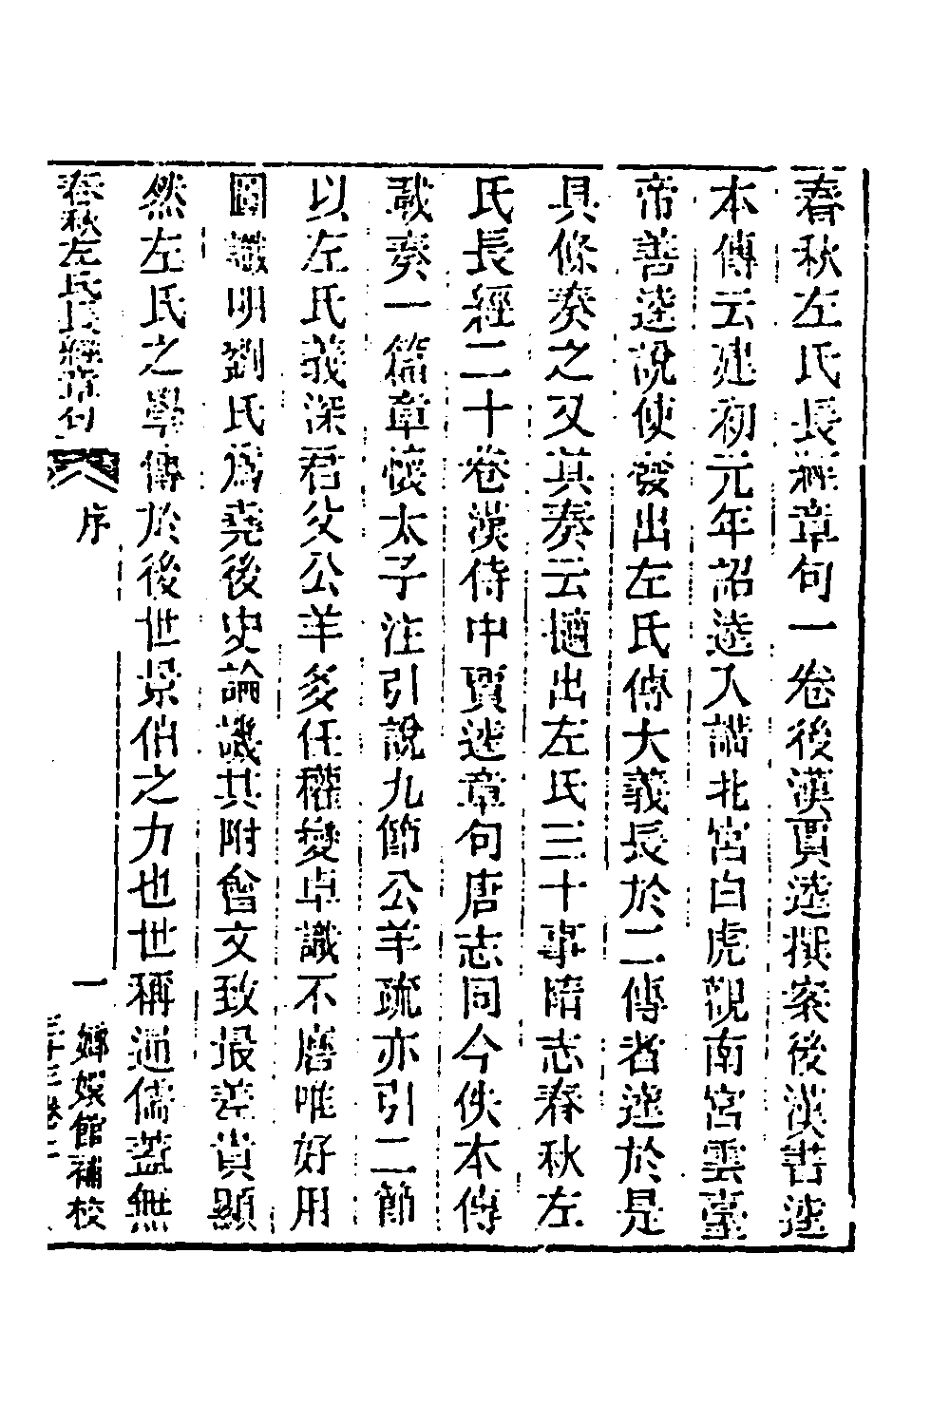 春秋左氏長經章句一卷後漢賈逵撰案後漢書逵
本傳云建初元年詔逵入講北宮白虎觀南宮雲臺
帝善逵說使發出左氏傳大義長於二傳者逵於是
具條奏之又其奏云擿出左氏三十事隋志春秋左
氏長經二十卷漢侍中賈逵章句唐志同今佚本傳
載奏一篇章懷太子注引說九節公羊疏亦引二節
以左氏義深君父公羊多任權變卓識不磨唯好用
圖讖明劉氏爲堯後史論譏其附會文致最差貴顯
然左氏之學傳於後世景伯之力也世稱通儒蓋無
春秋左氏長經章句 序 一 嫏嬛館補校